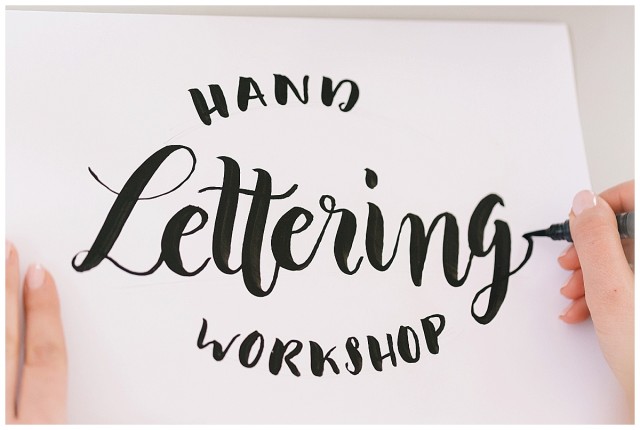 HAND
Lettering
WORKSHOP